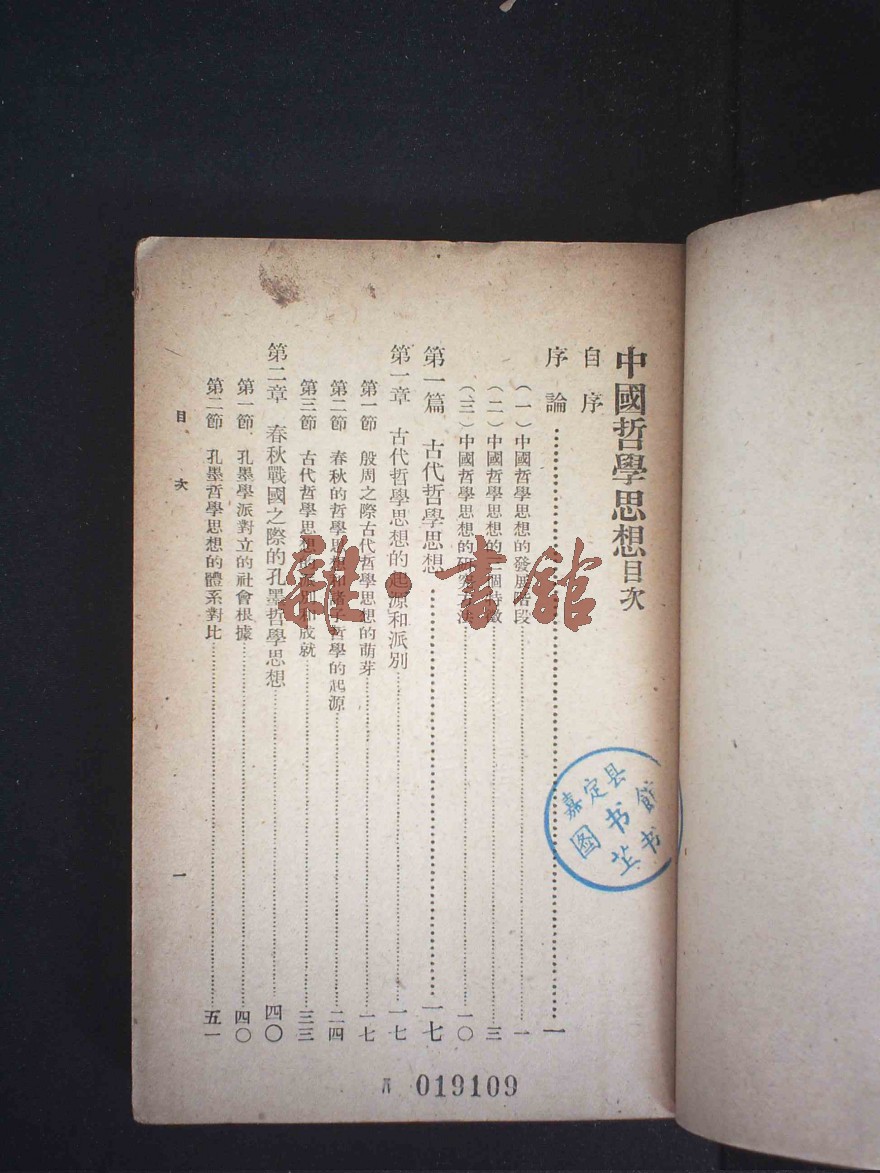 中國哲學思想目次
自序
序論…………一
(一)中國哲學思想的發展階段…………一
(二)中國哲學思想的一個特徵…………三
(三)中國哲學思想的研究方法…………一〇
第一篇 古代哲學思想…………一七
第一章 古代哲學思想的起源和派別…………一七
第一節 殷周之際古代哲學思想的萌芽…………一七
第二節 春秋的哲學思想和諸子哲學的起源…………二四
第三節 古代哲學思想的派別和成就…………三三
第二章 春秋戰國之際的孔墨哲學思想…………四〇
第一節 孔墨學派對立的社會根據…………四〇
第二節 孔墨哲學思想的體系對比…………五一
目次
一
雜·書館
嘉定县
图书館
书
019109